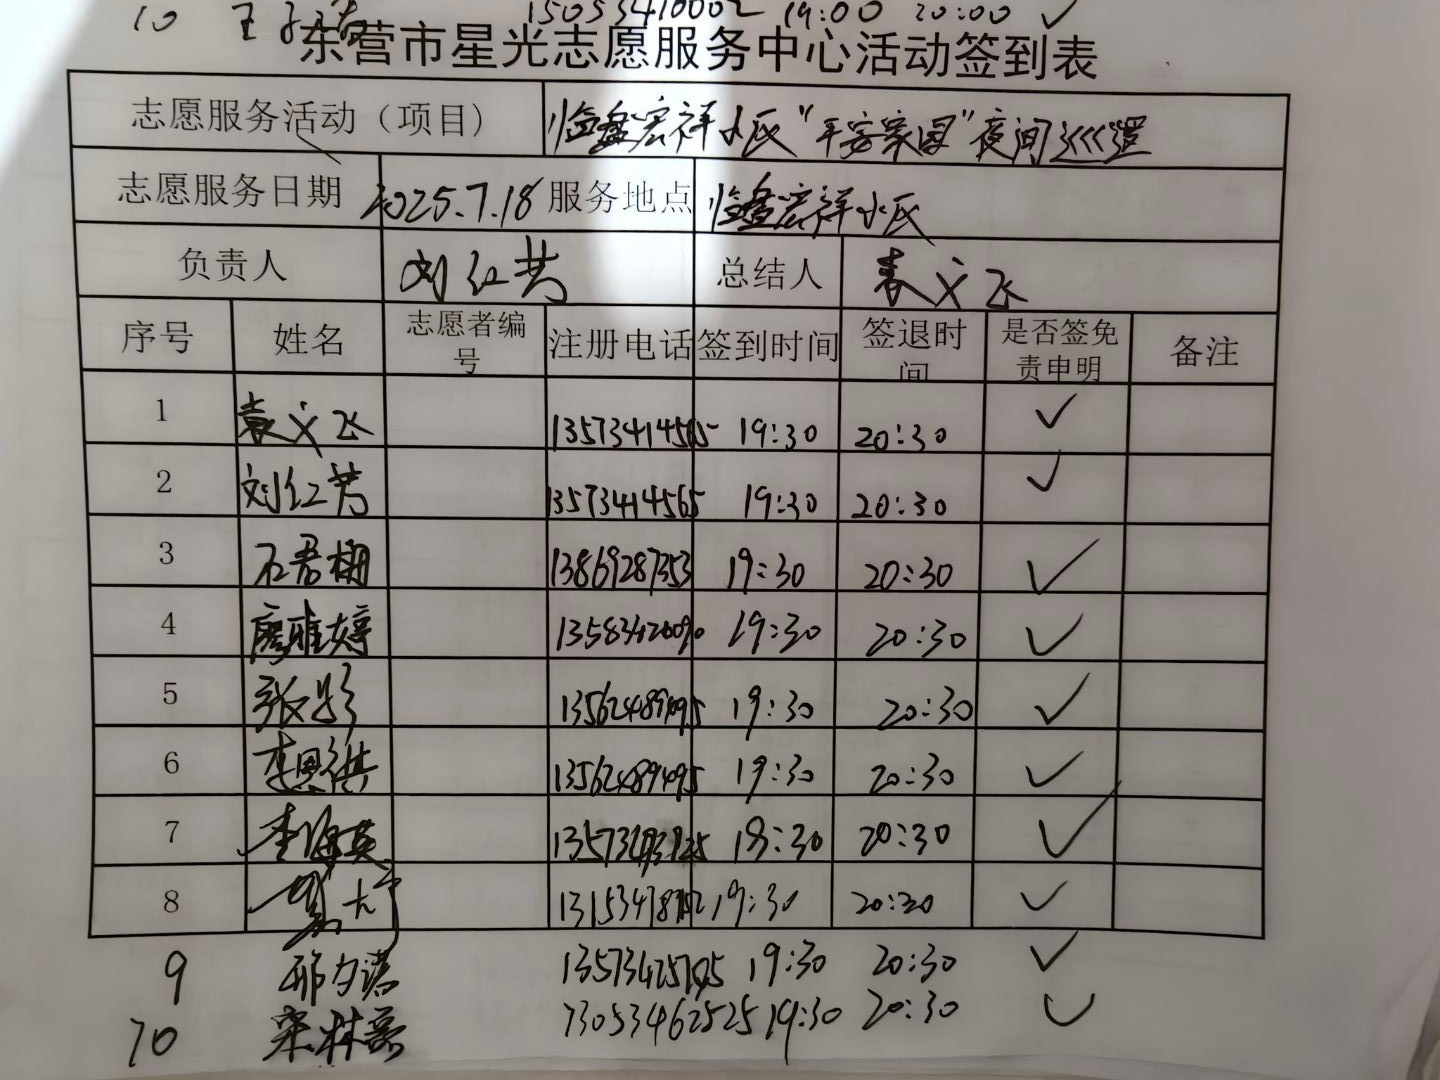 10 15053410002 19:00 20:00 ✓
东营市星光志愿服务中心活动签到表
志愿服务活动（项目） 临盘宏祥小区“平安家园”夜间巡逻
志愿服务日期 2025.7.18 服务地点 临盘宏祥小区
负责人 刘红芳 总结人 袁义飞
序号 姓名 志愿者编号 注册电话 签到时间 签退时间 是否签免责申明 备注
1 袁义飞 13573414565 19:30 20:30 ✓
2 刘红芳 13573414565 19:30 20:30 ✓
3 石君栩 13869287353 19:30 20:30 ✓
4 廖雅婷 13583426090 19:30 20:30 ✓
5 张彤 13562489495 19:30 20:30 ✓
6 李恩洪 13562489495 19:30 20:30 ✓
7 李海英 19:30 20:30 ✓
8 19:30 20:30 ✓
9 邢夕诺 19:30 20:30 ✓
10 宋林磊 13053462525 19:30 20:30 ✓